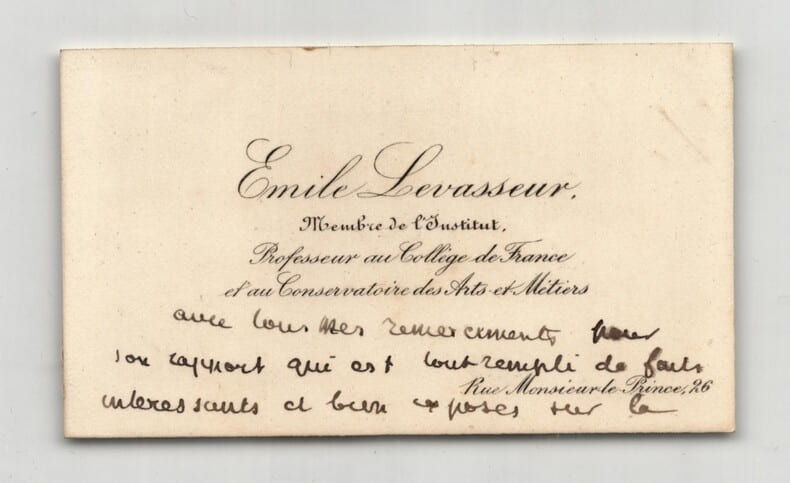 Emile Levasseur.
Membre de l'Institut,
Professeur au Collège de France
et au Conservatoire des Arts et Métiers
avec tous mes remerciements pour
son rapport qui est tout rempli de faits
Rue Monsieur-le-Prince, 26
interessants et bien exposés sur la